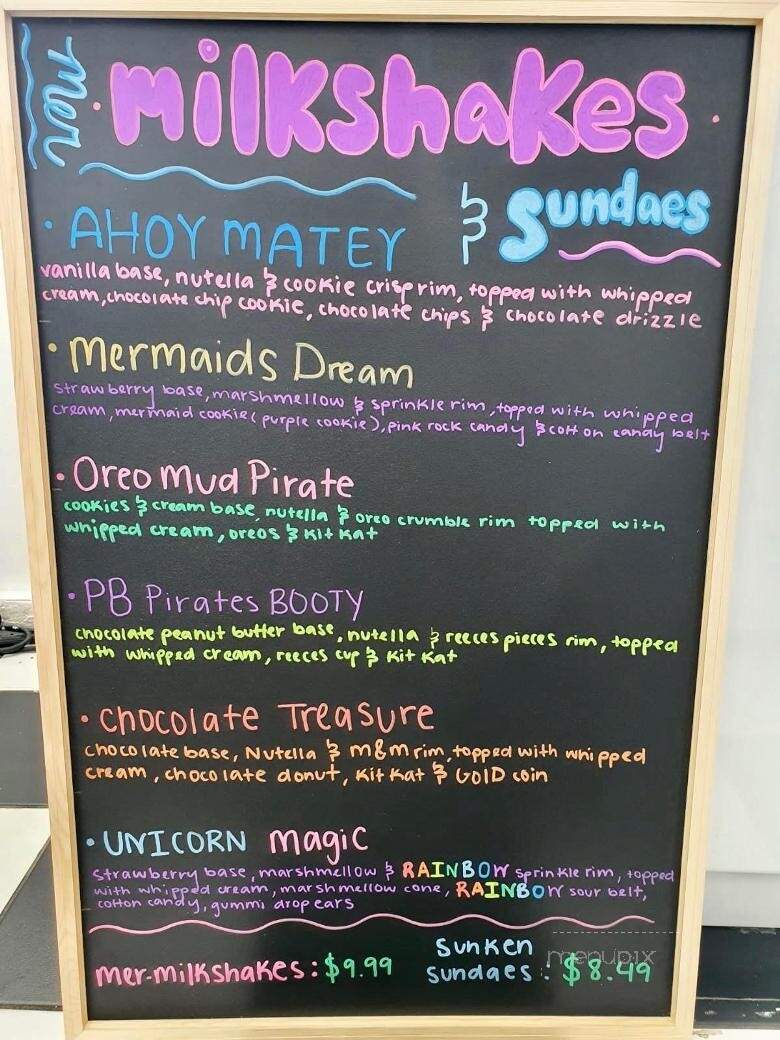 Mer
milkshakes
& Sundaes
• AHOY MATEY
vanilla base, nutella & cookie crisp rim, topped with whipped
cream, chocolate chip cookie, chocolate chips & chocolate drizzle
• Mermaids Dream
Strawberry base, marshmellow & sprinkle rim, topped with whipped
cream, mermaid cookie (purple cookie), pink rock candy & cotton candy belt
• Oreo Mud Pirate
cookies & cream base, nutella & oreo crumble rim topped with
whipped cream, oreos & Kit Kat
• PB Pirates BOOTY
chocolate peanut butter base, nutella & reeces pieces rim, topped
with whipped cream, reeces cup & Kit Kat
• Chocolate Treasure
chocolate base, Nutella & m&m rim, topped with whipped
cream, chocolate donut, Kit Kat & GOLD coin
• UNICORN magic
Strawberry base, marshmellow & RAINBOW sprinkle rim, topped
with whipped cream, marshmellow cone, RAINBOW sour belt,
cotton candy, gummi drop ears
mer-milkshakes: $9.99
Sunken
sundaes: $8.49
menupix